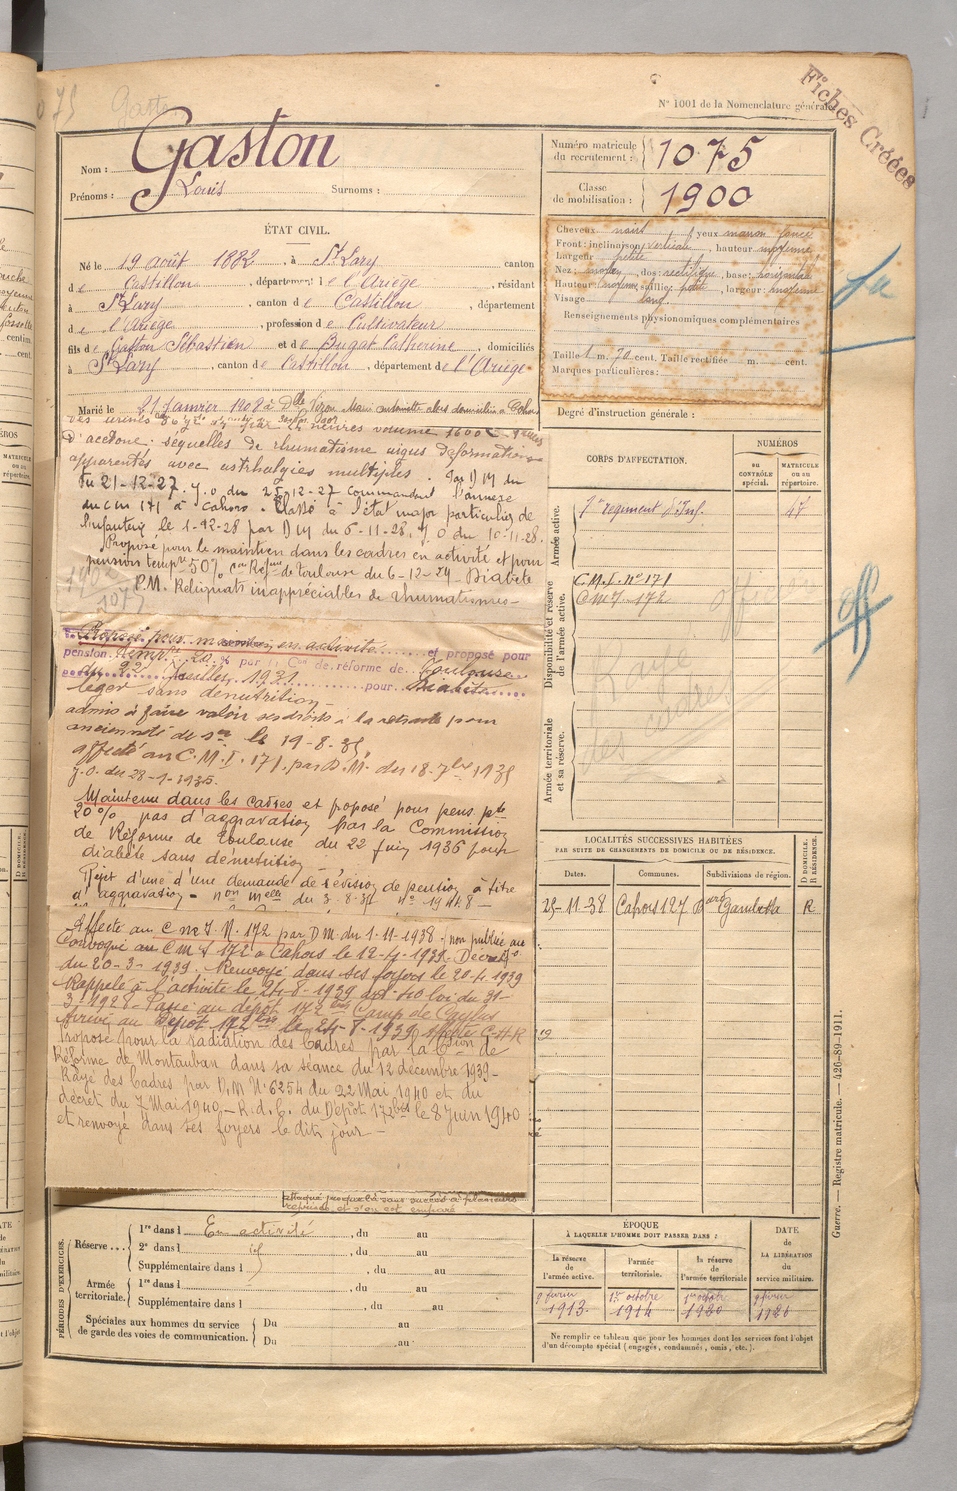 N° 1001 de la Nomenclature générale
Fiches Créées
Nom : Gaston
Prénoms : Louis Surnoms :
Numéro matricule du recrutement : 1075
Classe de mobilisation : 1900
ÉTAT CIVIL.
Né le 19 août 1882, à St Lary canton
de Castillon, département de l'Ariège, résidant
à St Lary, canton de Castillon, département
de l'Ariège, profession de Cultivateur
fils de Gaston Sébastien et de Dugat Catherine, domiciliés
à St Lary, canton de Castillon, département de l'Ariège
Marié le 21 Janvier 1908 à Dlle
Cheveux noirs, yeux marron foncé
Front : inclinaison verticale, hauteur moyenne
Largeur petite
Nez : moyen, dos : rectiligne, base : horizontale
Hauteur moyenne, saillie : petite, largeur : moyenne
Visage long
Renseignements physionomiques complémentaires
Taille 1 m. 70 cent. Taille rectifiée m. cent.
Marques particulières :
Degré d'instruction générale :
24 heures volume 1600
d'acétone. séquelles de rhumatisme aigus déformations
apparentés avec arthralgies multiples. Par DM du
21-12-27. J.O. du 25-12-27 commandant l'annexe
du CMI 171 à Cahors. Classé à l'état major particulier de
l'infanterie le 1-12-28 par DM du 6-11-28, J.O du 10-11-28.
Proposé pour le maintien dans les cadres en activité et pour
pension tempre 50% Con Réfme de Toulouse du 6-12-29 - Diabète
P.M. Reliquats inappréciables de rhumatismes -
1902
1077
Proposé pour maintien en activité et proposé pour
pension temre 20 % par la Con de réforme de Toulouse
du 22 Juillet 1931 pour Diabète
léger sans dénutrition -
admis à faire valoir ses droits à la retraite pour
ancienneté de sce le 19-8-35,
affecté au C.M.I. 171 par D.M. du 18-7bre 1935
J.O. du 28-9-1935.
Maintenu dans les cadres et proposé pour pens. pte
20% pas d'aggravation par la Commission
de Réforme de Toulouse du 22 juin 1936 pour
diabète sans dénutrition
Rejet d'une d'une demande de révision de pension à titre
d'aggravation - non melle du 3-8-36 N° 19448 -
Affecté au C M I N° 172 par DM du 1-11-1938 (non publié au
Convoqué au C M I 172 à Cahors le 12-4-1939. Décret
du 20-3-1939. Renvoyé dans ses foyers le 20-4-1939
Rappelé à l'activité le 24-8-1939 art 40 loi du 31-
3-1928 - Passé au dépôt 172 bis Camp de Caylus
Arrivé au Dépôt 172 bis le 24-8-1939 affecté C-H-R
Proposé pour la radiation des Cadres par la Csion de
Réforme de Montauban dans sa séance du 12 décembre 1939 -
Rayé des Cadres par D.M N° 6254 du 22 Mai 1940 et du
décret du 7 Mai 1940 - R.d.C. du Dépôt 172 bis le 8 Juin 1940
et renvoyé dans ses foyers le dit jour -
attaqué jusque là sans succès à plusieurs
reprises et s'en est emparé
CORPS D'AFFECTATION.
NUMÉROS
AU CONTRÔLE spécial.
MATRICULE ou au répertoire.
Armée active.
Disponibilité et réserve de l'armée active.
Armée territoriale et sa réserve.
7e régiment d'Inf.
C.M.I. n° 171
CMI - 172
officier
Rayé
des cadres
LOCALITÉS SUCCESSIVES HABITÉES
PAR SUITE DE CHANGEMENTS DE DOMICILE OU DE RÉSIDENCE.
Dates.
Communes.
Subdivisions de région.
D DOMICILE.
R RÉSIDENCE.
25-11-38 Cahors 127 Bard Gambetta R
PÉRIODES D'EXERCICES.
Réserve ...
1re dans l En activité, du au
2e dans l id, du au
Supplémentaire dans l, du au
Armée territoriale.
1re dans l, du au
Supplémentaire dans l, du au
Spéciales aux hommes du service de garde des voies de communication.
Du au
Du au
ÉPOQUE
À LAQUELLE L'HOMME DOIT PASSER DANS :
la réserve de l'armée active.
l'armée territoriale.
la réserve de l'armée territoriale
DATE DE LA LIBÉRATION du service militaire.
1913
1er octobre 1914
1er octobre 1920
1926
Ne remplir ce tableau que pour les hommes dont les services font l'objet
d'un décompte spécial (engagés, condamnés, omis, etc.).
Guerre. — Registre matricule. — 426-89-1911.